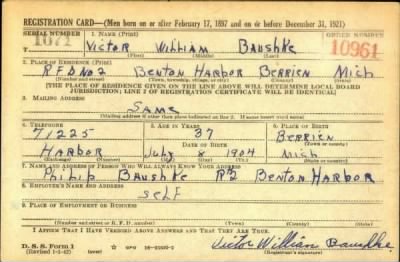 REGISTRATION CARD—(Men born on or after February 17, 1897 and on or before December 31, 1921)
SERIAL NUMBER 1. NAME (Print) ORDER NUMBER
1071 Victor William Baushke 10961
(First) (Middle) (Last)
2. PLACE OF RESIDENCE (Print)
RFD No 2 Benton Harbor Berrien Mich
(Number and street) (Town, township, village, or city) (County) (State)
[THE PLACE OF RESIDENCE GIVEN ON THE LINE ABOVE WILL DETERMINE LOCAL BOARD
JURISDICTION; LINE 2 OF REGISTRATION CERTIFICATE WILL BE IDENTICAL]
3. MAILING ADDRESS
Same
[Mailing address if other than place indicated on line 2. If same insert word same]
4. TELEPHONE 5. AGE IN YEARS 6. PLACE OF BIRTH
71225 37 Berrien
DATE OF BIRTH (Town or county)
Harbor July 8 1904 Mich
(Exchange) (Number) (Mo.) (Day) (Yr.) (State or country)
7. NAME AND ADDRESS OF PERSON WHO WILL ALWAYS KNOW YOUR ADDRESS
Philip Baushke R2 Benton Harbor
8. EMPLOYER'S NAME AND ADDRESS
Self
9. PLACE OF EMPLOYMENT OR BUSINESS
(Number and street or R. F. D. number) (Town) (County) (State)
I AFFIRM THAT I HAVE VERIFIED ABOVE ANSWERS AND THAT THEY ARE TRUE.
D. S. S. Form 1
(Revised 1-1-42) GPO Victor William Baushke
(Registrant's signature)